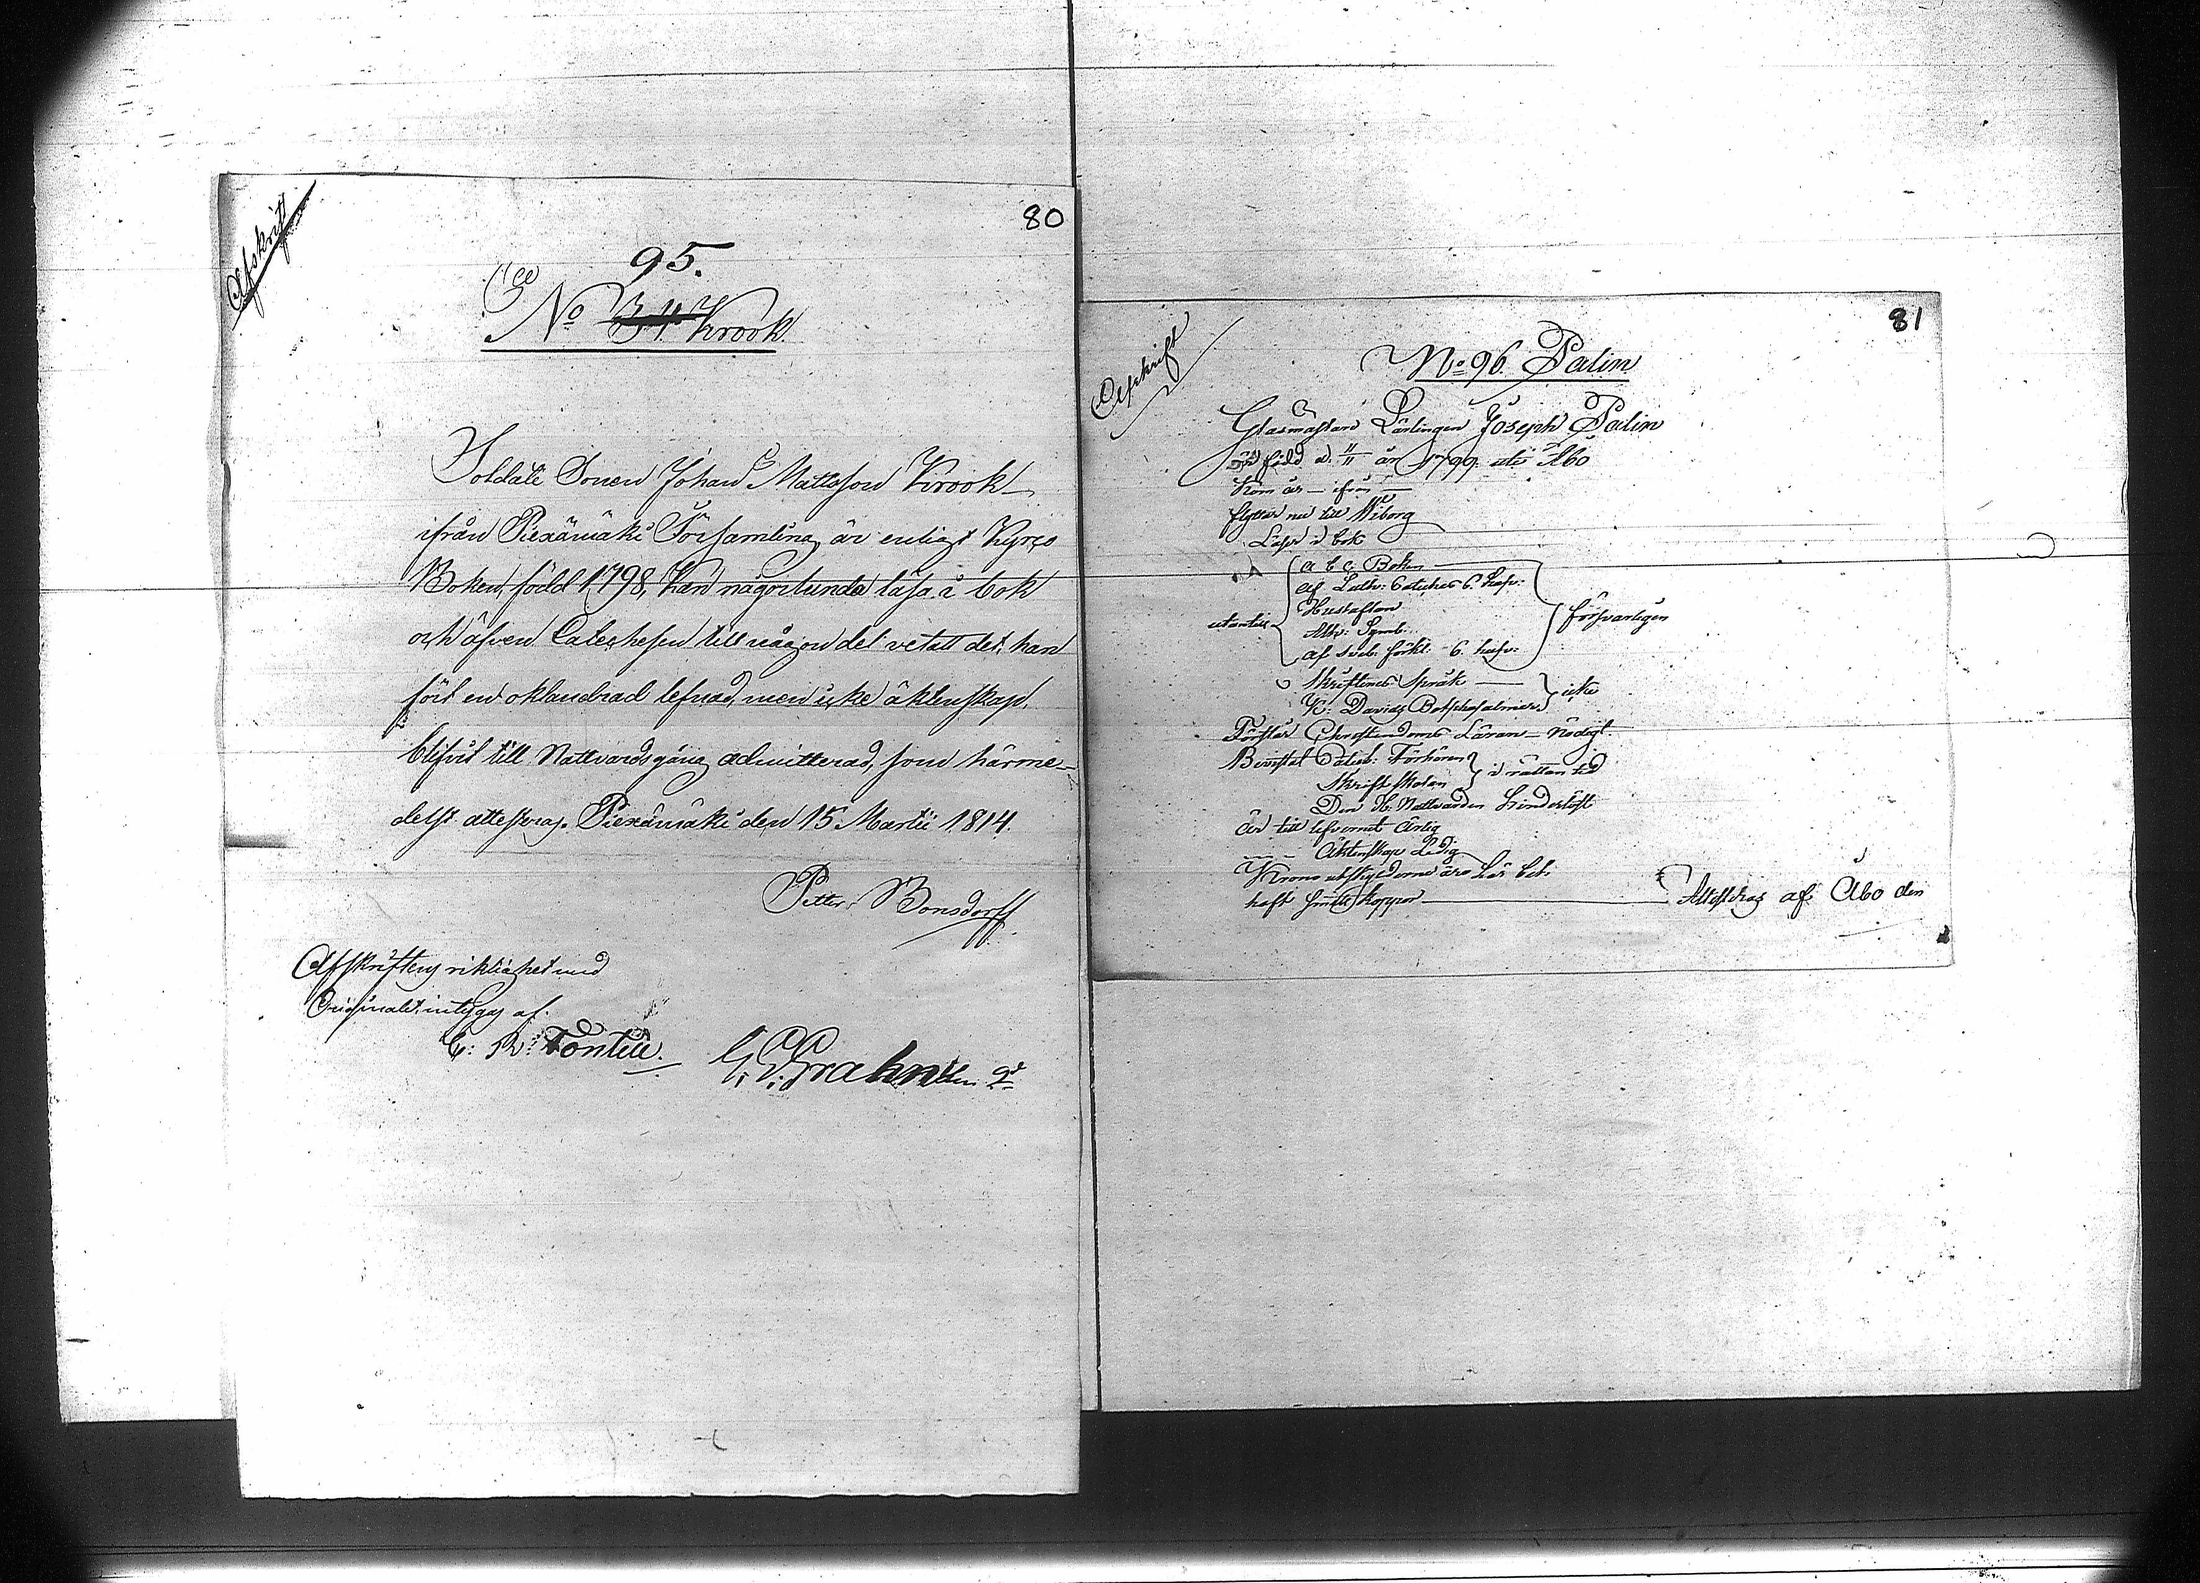 Afskrift
80
95.
No 34. Krook.
Soldate Sonen Johan Mattsson Krook
ifrån Piexämäki Församling är enligt Kyrco
Boken, född 1798, kan någorlunda läsa i bok
och äfven Catechesen till någon del vetatt det, han
fört en oklandrad lefnad, men icke äktenskap,
blifvit till Nattvardsgång admitterad, som härme-
delst attesteras. Piexämäki den 15 Martii 1814.
Petter Bonsdorff
Afskriftens riktighet med
Originalet intygas af.
C: R: Fontell. G. Grahn
81
Afskrift
No 96. Palin
Glasmästare Lärlingen Joseph Palin
född d. 11/11 år 1799 uti Åbo
Kom år — ifrån —
flyttar nu till Wiborg
Läser i bok
a b c Boken
af Luth: Cateches 6. hufv:
Hustaflan
Ath: Symb:
af Sveb: förkl. 6. hufv:
utantill
försvarligen
Skriftenes språk —
K: Davids Botpsalmer
icke
Förstår Christendoms Läran — nödigt.
Bevistat Catech: Förhören
Skriftskolan
i rättan tid
Den H: Nattvarden hinderlöst
är till lefvernet ärlig
— Äktenskap Ledig
Krono utskylderne äro här bet:
haft smittkoppor — Attesteras af Åbo den